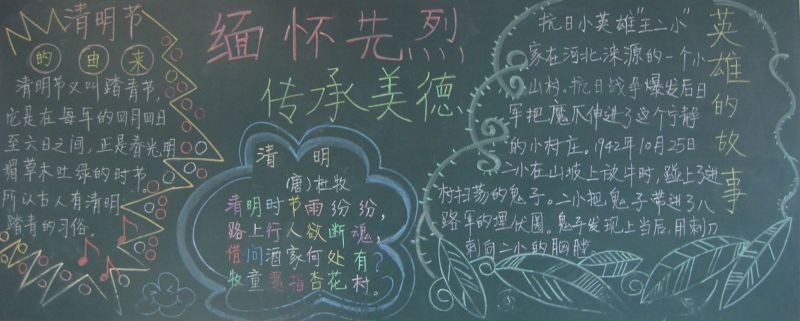 清明节
的由来
清明节又叫踏青节,
它是在每年的四月四日
至六日之间,正是春光明
媚草木吐绿的时节。
所以古人有清明
踏青的习俗。
缅怀先烈
传承美德
清 明
(唐)杜牧
清明时节雨纷纷,
路上行人欲断魂,
借问酒家何处有?
牧童遥指杏花村。
英雄的故事
抗日小英雄"王二小"
家在河北涞源的一个小
山村。抗日战争爆发后日
军把魔爪伸进了这个宁静
的小村庄。1942年10月25日
二小在山坡上放牛时,碰上了进
村扫荡的鬼子。二小把鬼子带进了八
路军的埋伏圈。鬼子发现上当后,用刺刀
刺向二小的胸膛